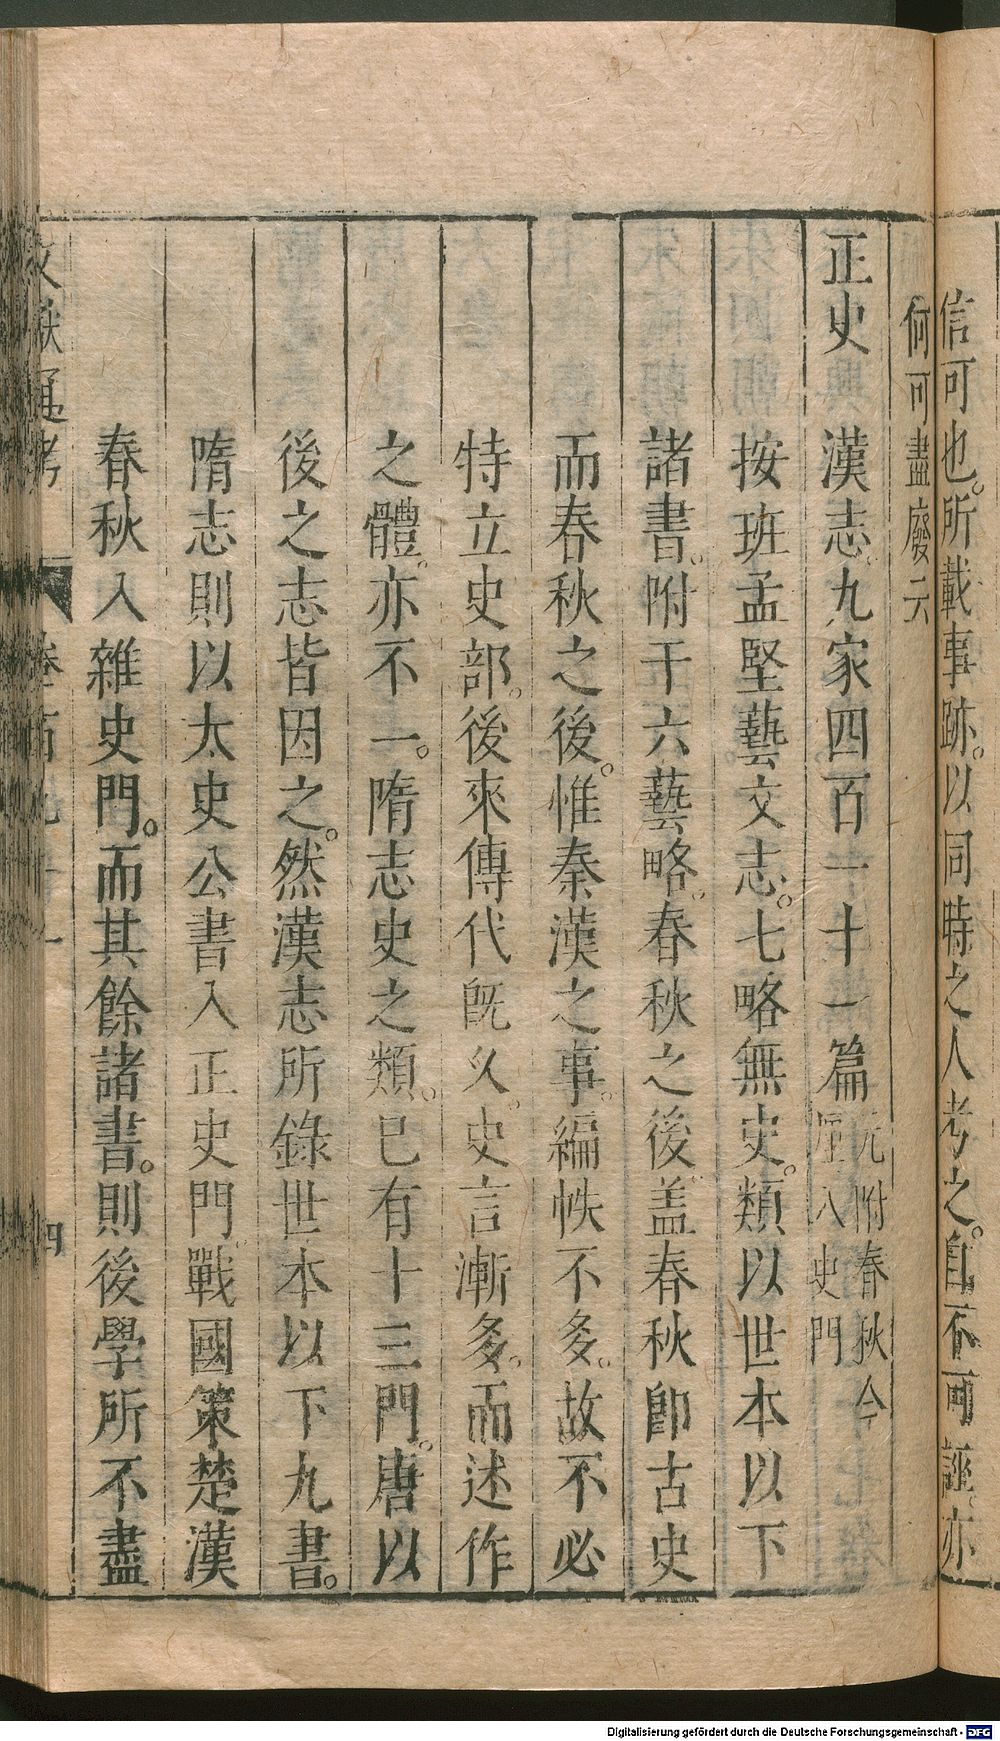 信可也。所載事跡。以同時之人考之。自不可誣。亦
何可盡廢云
正史 漢志。九家四百一十一篇 元附春秋今
厘入史門
按班孟堅藝文志。七略無史。類以世本以下
諸書。附于六藝略。春秋之後。盖春秋卽古史
而春秋之後。惟秦漢之事。編帙不多。故不必
特立史部。後來傳代既久。史言漸多。而述作
之體。亦不一。隋志史之類。已有十三門。唐以
後之志皆因之。然漢志所錄世本以下九書。
隋志則以太史公書入正史門。戰國策楚漢
春秋入雜史門。而其餘諸書。則後學所不盡
文獻通考
四
Digitalisierung gefördert durch die Deutsche Forschungsgemeinschaft - DFG